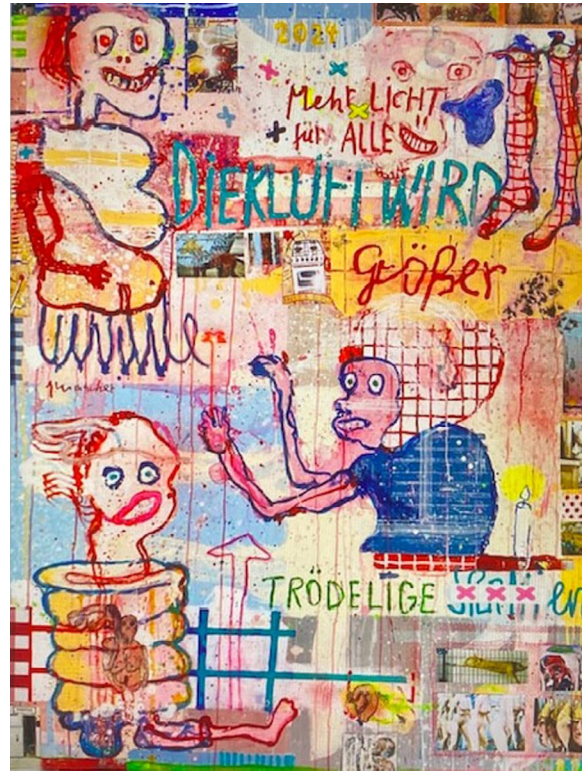 2024
Mehr LICHT
für ALLE
DIE KLUFT WIRD
Größer
TRÖDELIGE